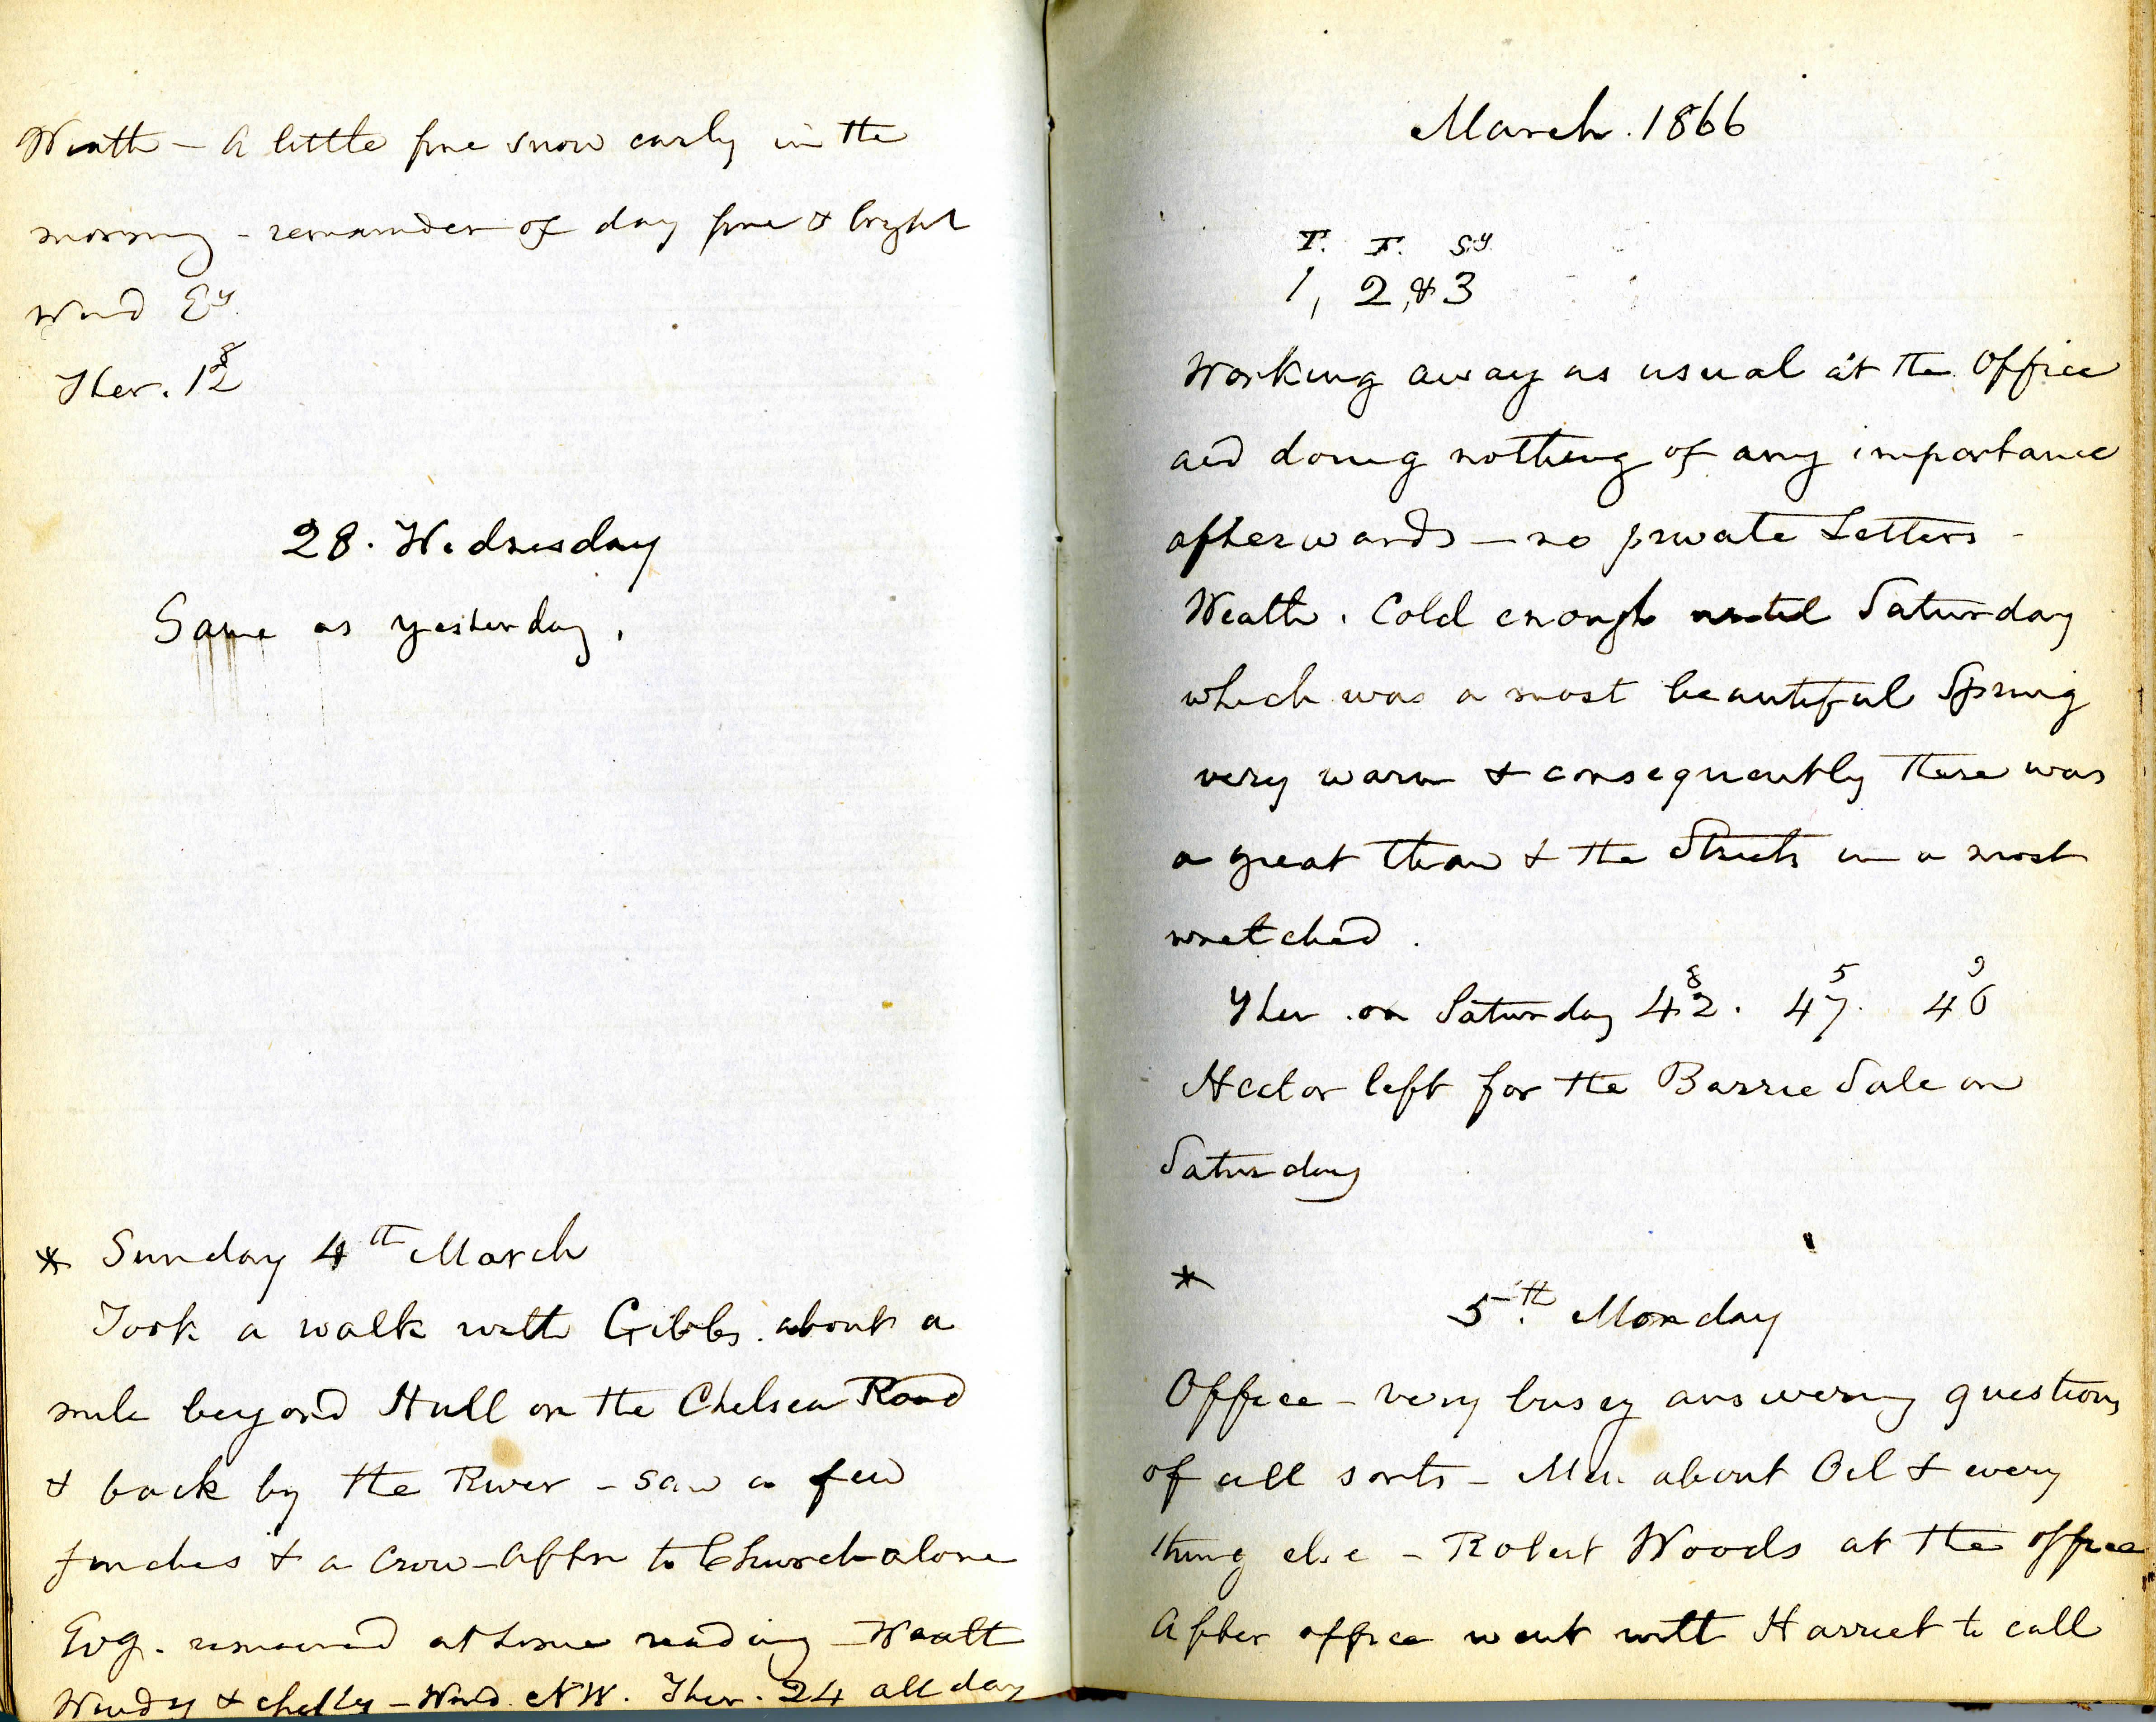 Weath - A little fine snow early in the
morning - remainder of day fine & bright
Wind Ey.
Ther. 12 8
28. Wednesday
Same as yesterday.
* Sunday 4th March
Took a walk with Gibbs about a
mile beyond Hull on the Chelsea Road
& back by the River - saw a few
finches & a Crow - Aftn to Church alone
Evg. remained at home reading - Weath
Windy & chilly - Wind NW. Ther. 24 all day
March. 1866
T. F. Sy.
1, 2, & 3
Working away as usual at the Office
and doing nothing of any importance
afterwards - no private Letters -
Weath. Cold enough until Saturday
which was a most beautiful Spring
very warm & consequently there was
a great thaw & the Streets in a most
wretched.
Ther. on Saturday 42 8. 47 5. 46 9
Hector left for the Barrie Sale on
Saturday
*
5th. Monday
Office - very busy answering questions
of all sorts - Men about Oil & every
thing else - Robert Woods at the office
After office went with Harriet to call